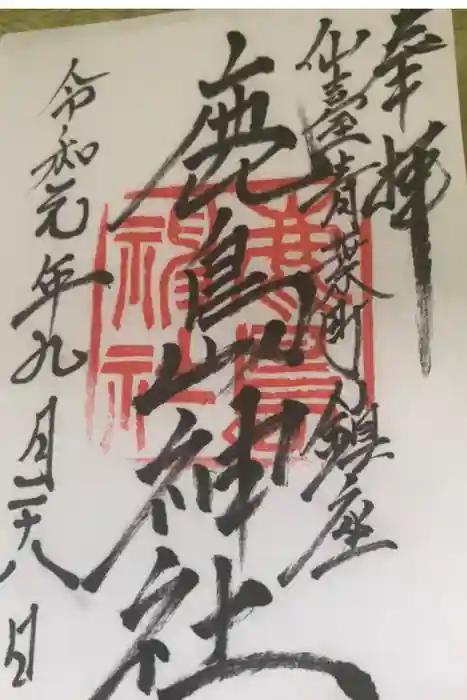 奉拝
仙臺青葉町鎮座
鹿島神社
令和元年九月二十八日
鹿島
神社